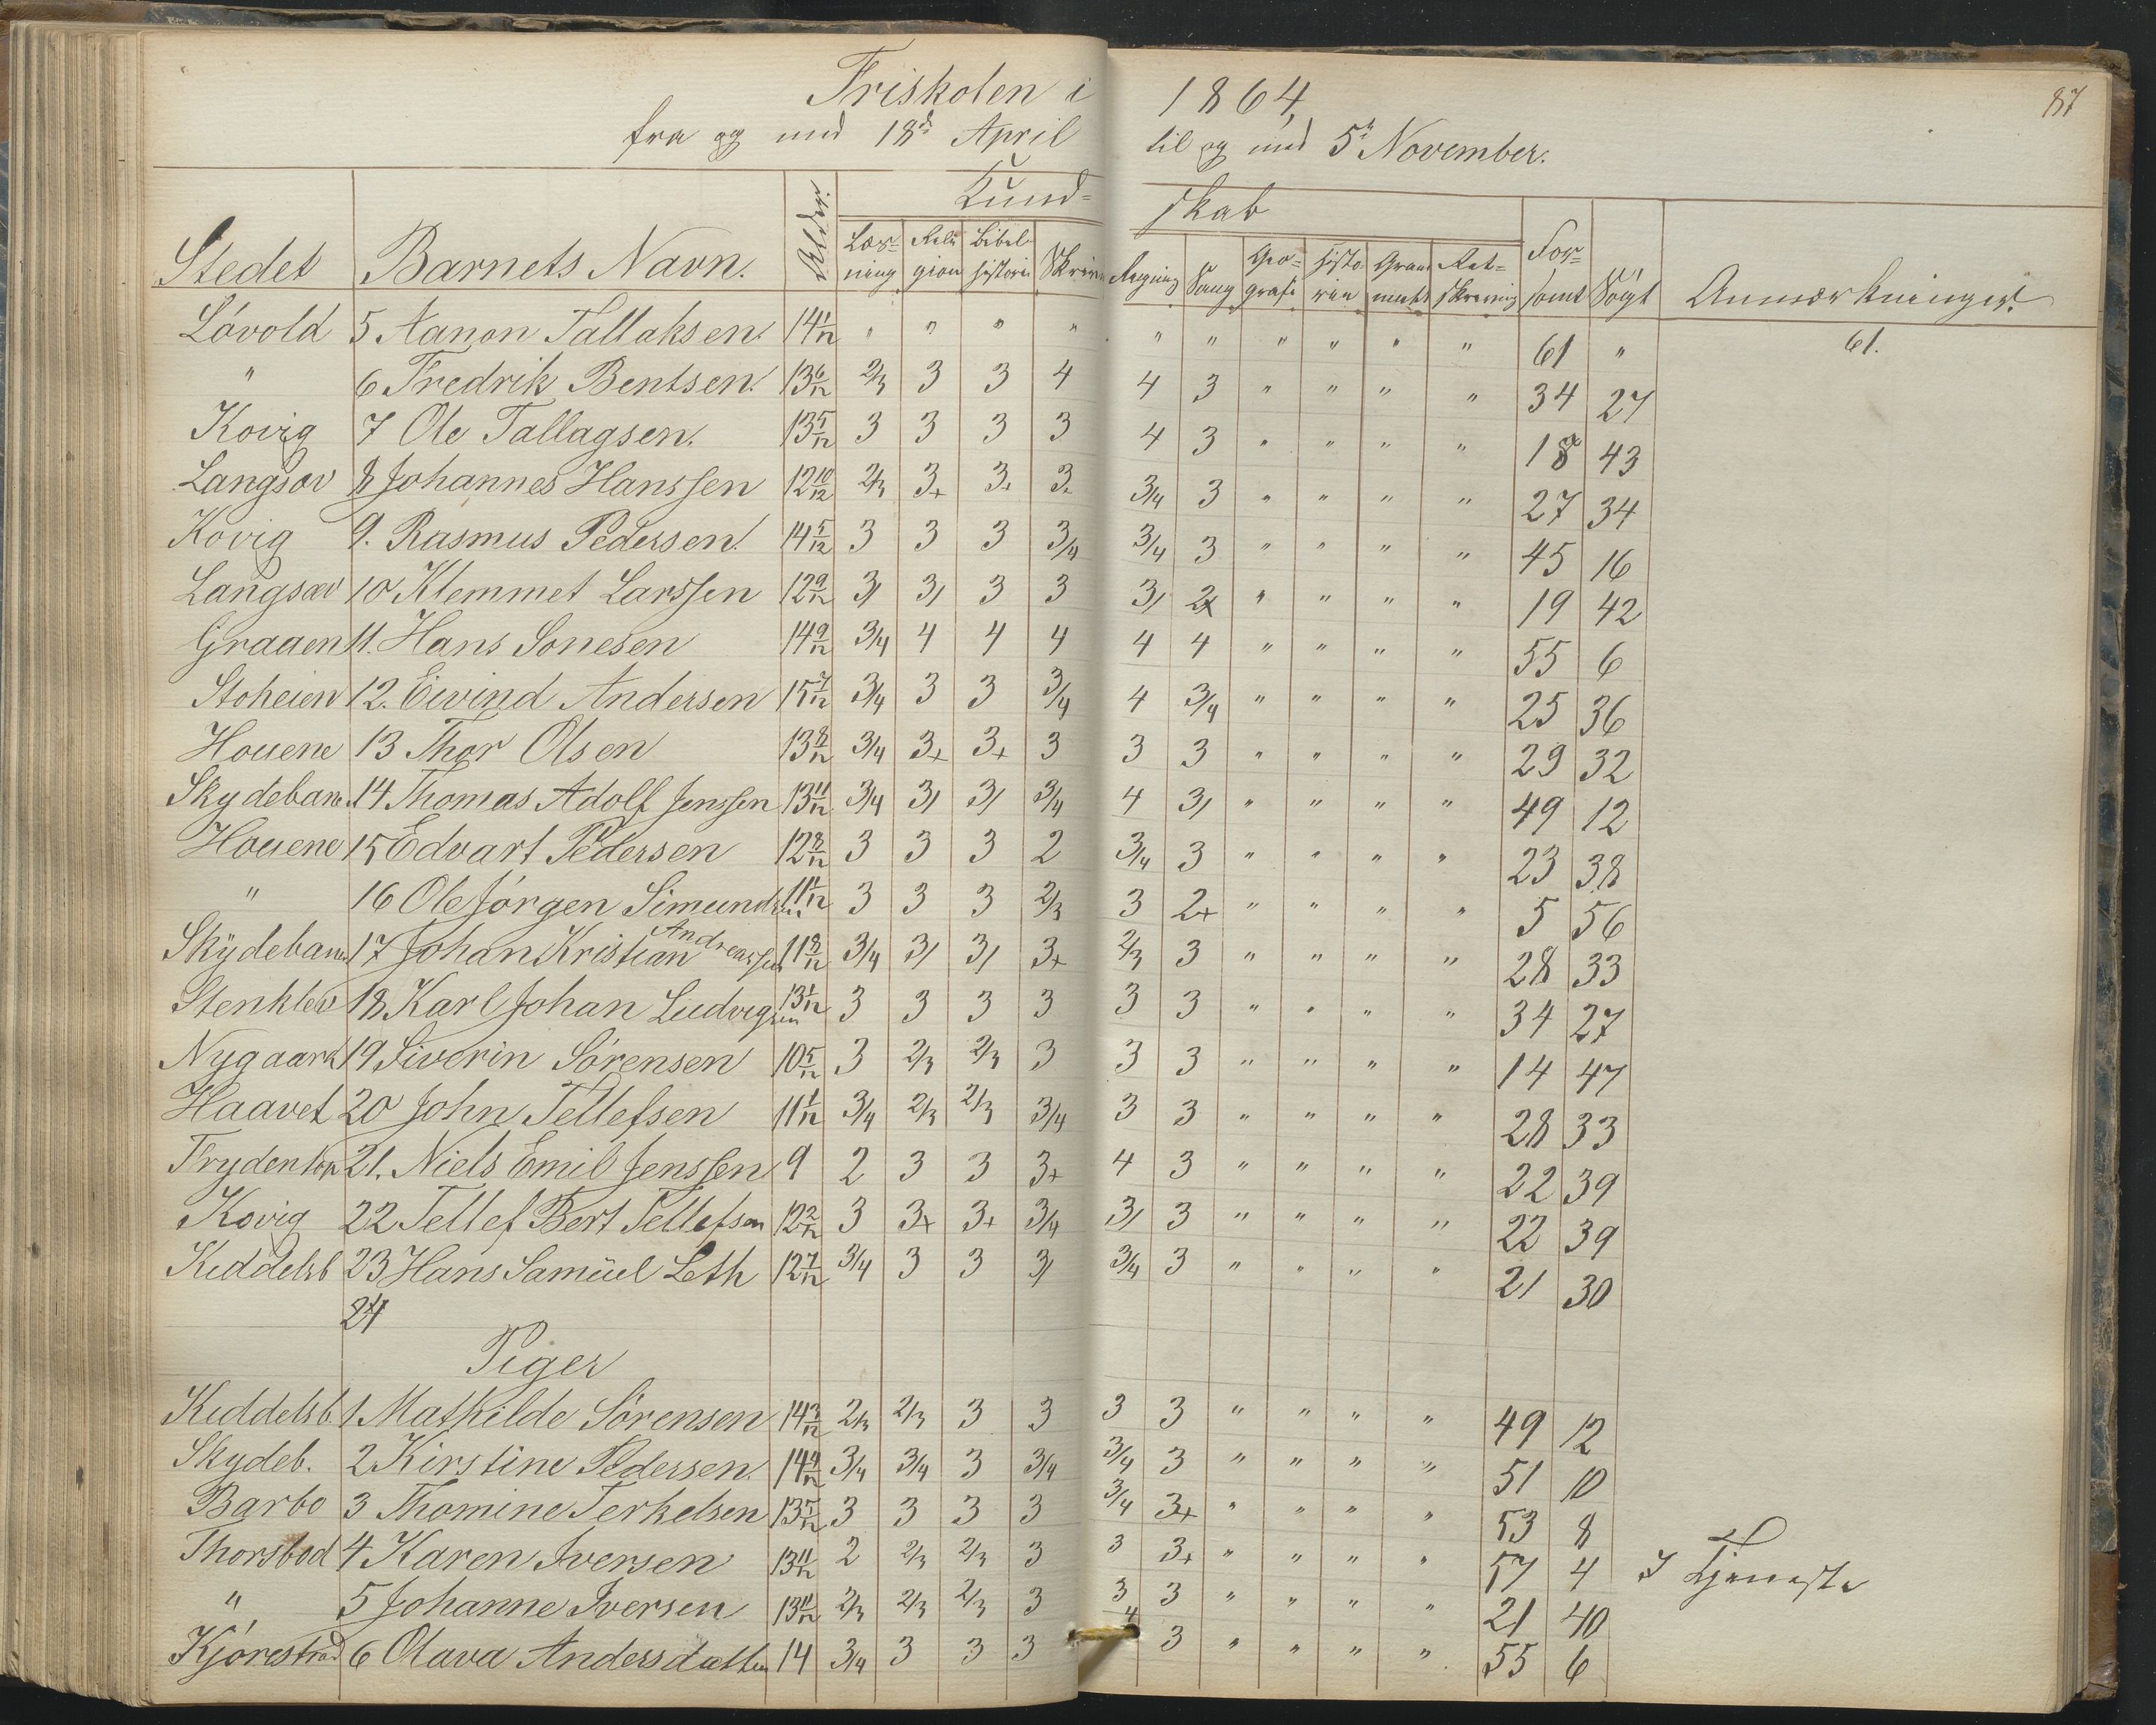 87
Friskolen i 1864,
fra og med 18d April til og med 5t November.
Kund- skab
Stedet Barnets Navn. Alder. Læs- ning Reli gion Bibel- historie Skrivn Regning Sang Geo- grafi Histo- rien Gram matik Ret- skrivning For- sømt Søgt Anmærkninger.
Lóvold 5 Aanon Tallaksen. 14 1/12 " " " " " " " " " " 61 " 61.
" 6 Fredrik Bentsen. 13 6/12 2/3 3 3 4 4 3 " " " " 34 27
Kovig 7 Ole Tallagsen. 13 5/12 3 3 3 3 4 3 " " " " 18 43
Langsæv 8 Johannes Hanssen 12 10/12 2/3 3+ 3+ 3+ 3/4 3 " " " " 27 34
Kovig 9. Rasmus Pedersen. 14 5/12 3 3 3 3/4 3/4 3 " " " " 45 16
Langsæv 10 Klemmet Larssen 12 9/12 3/ 3/ 3 3 3/ 2+ " " " " 19 42
Graaen 11. Hans Sonesen 14 9/12 3/4 4 4 4 4 4 " " " " 55 6
Stoheien 12. Eivind Andersen 15 7/12 3/4 3 3 3/4 4 3/4 " " " " 25 36
Houene 13 Thor Olsen 13 8/12 3/4 3+ 3+ 3 3 3 " " " " 29 32
Skydebane 14 Thomas Adolf Jenssen 13 11/12 3/4 3/ 3/ 3/4 4 3/ " " " " 49 12
Houene 15 Edvart Pedersen 12 8/12 3 3 3 2 3/4 3 " " " " 23 38
" 16 Ole Jórgen Simundsen. 11 11/12 3 3 3 2/3 3 2+ " " " " 5 56
Skydebanen 17 Johan Kristian Andreassen 11 8/12 3/4 3/ 3/ 3+ 2/3 3 " " " " 28 33
Stenklev 18 Karl Johan Ludvigsen 13 1/12 3 3 3 3 3 3 " " " " 34 27
Nygaard 19 Siverin Sórensen 10 5/12 3 2/3 2/3 3 3 3 " " " " 14 47
Haavet 20 John Tellefsen 11 1/12 3/4 2/3 2/3 3/4 3 3 " " " " 28 33
Frydentop 21. Niels Emil Jenssen 9 2 3 3 3+ 4 3 " " " " 22 39
Kovig 22 Tellef Bert Tellefsen 12 2/12 3 3+ 3+ 3/4 3/ 3 " " " " 22 39
Kiddelsb 23 Hans Samüel Leth 12 7/12 3/4 3 3 3/ 3/4 3 " " " " 21 30
24
Piger
Kiddelsb. 1 Mathilde Sórensen 14 3/12 2/3 2/3 3 3 3 3 " " " " 49 12
Skydeb. 2 Kirstine Pedersen. 14 4/12 3/4 3/4 3 3/4 3/4 3 " " " " 51 10
Barbo 3 Thomine Terkelsen 13 5/12 3 3 3 3 3/4 3+ " " " " 53 8
Thorsbod 4 Karen Iversen 13 11/12 2 2/3 2/3 3 3 3+ " " " " 57 4 I Tjeneste
" 5 Johanne Iversen 13 11/12 2/3 2/3 2/3 3 3/4 3 " " " " 21 40
Kjórestrad 6 Olava Andersdatter 14 3/4 3 3 3 3 " " " " 55 6